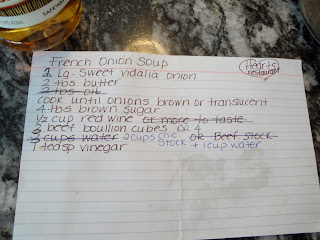 French Onion Soup
Hearts
restaurant
2 Lg. Sweet Vidalia Onion
2 tbs butter
2 tbs oil
cook until onions brown or translucent
4 tbs brown sugar
1/2 cup red wine or more to taste
2 beef boullion cubes or 4
3 cups water 2 cups chic stock + 1 cup water or Beef Stock
1 teasp vinegar